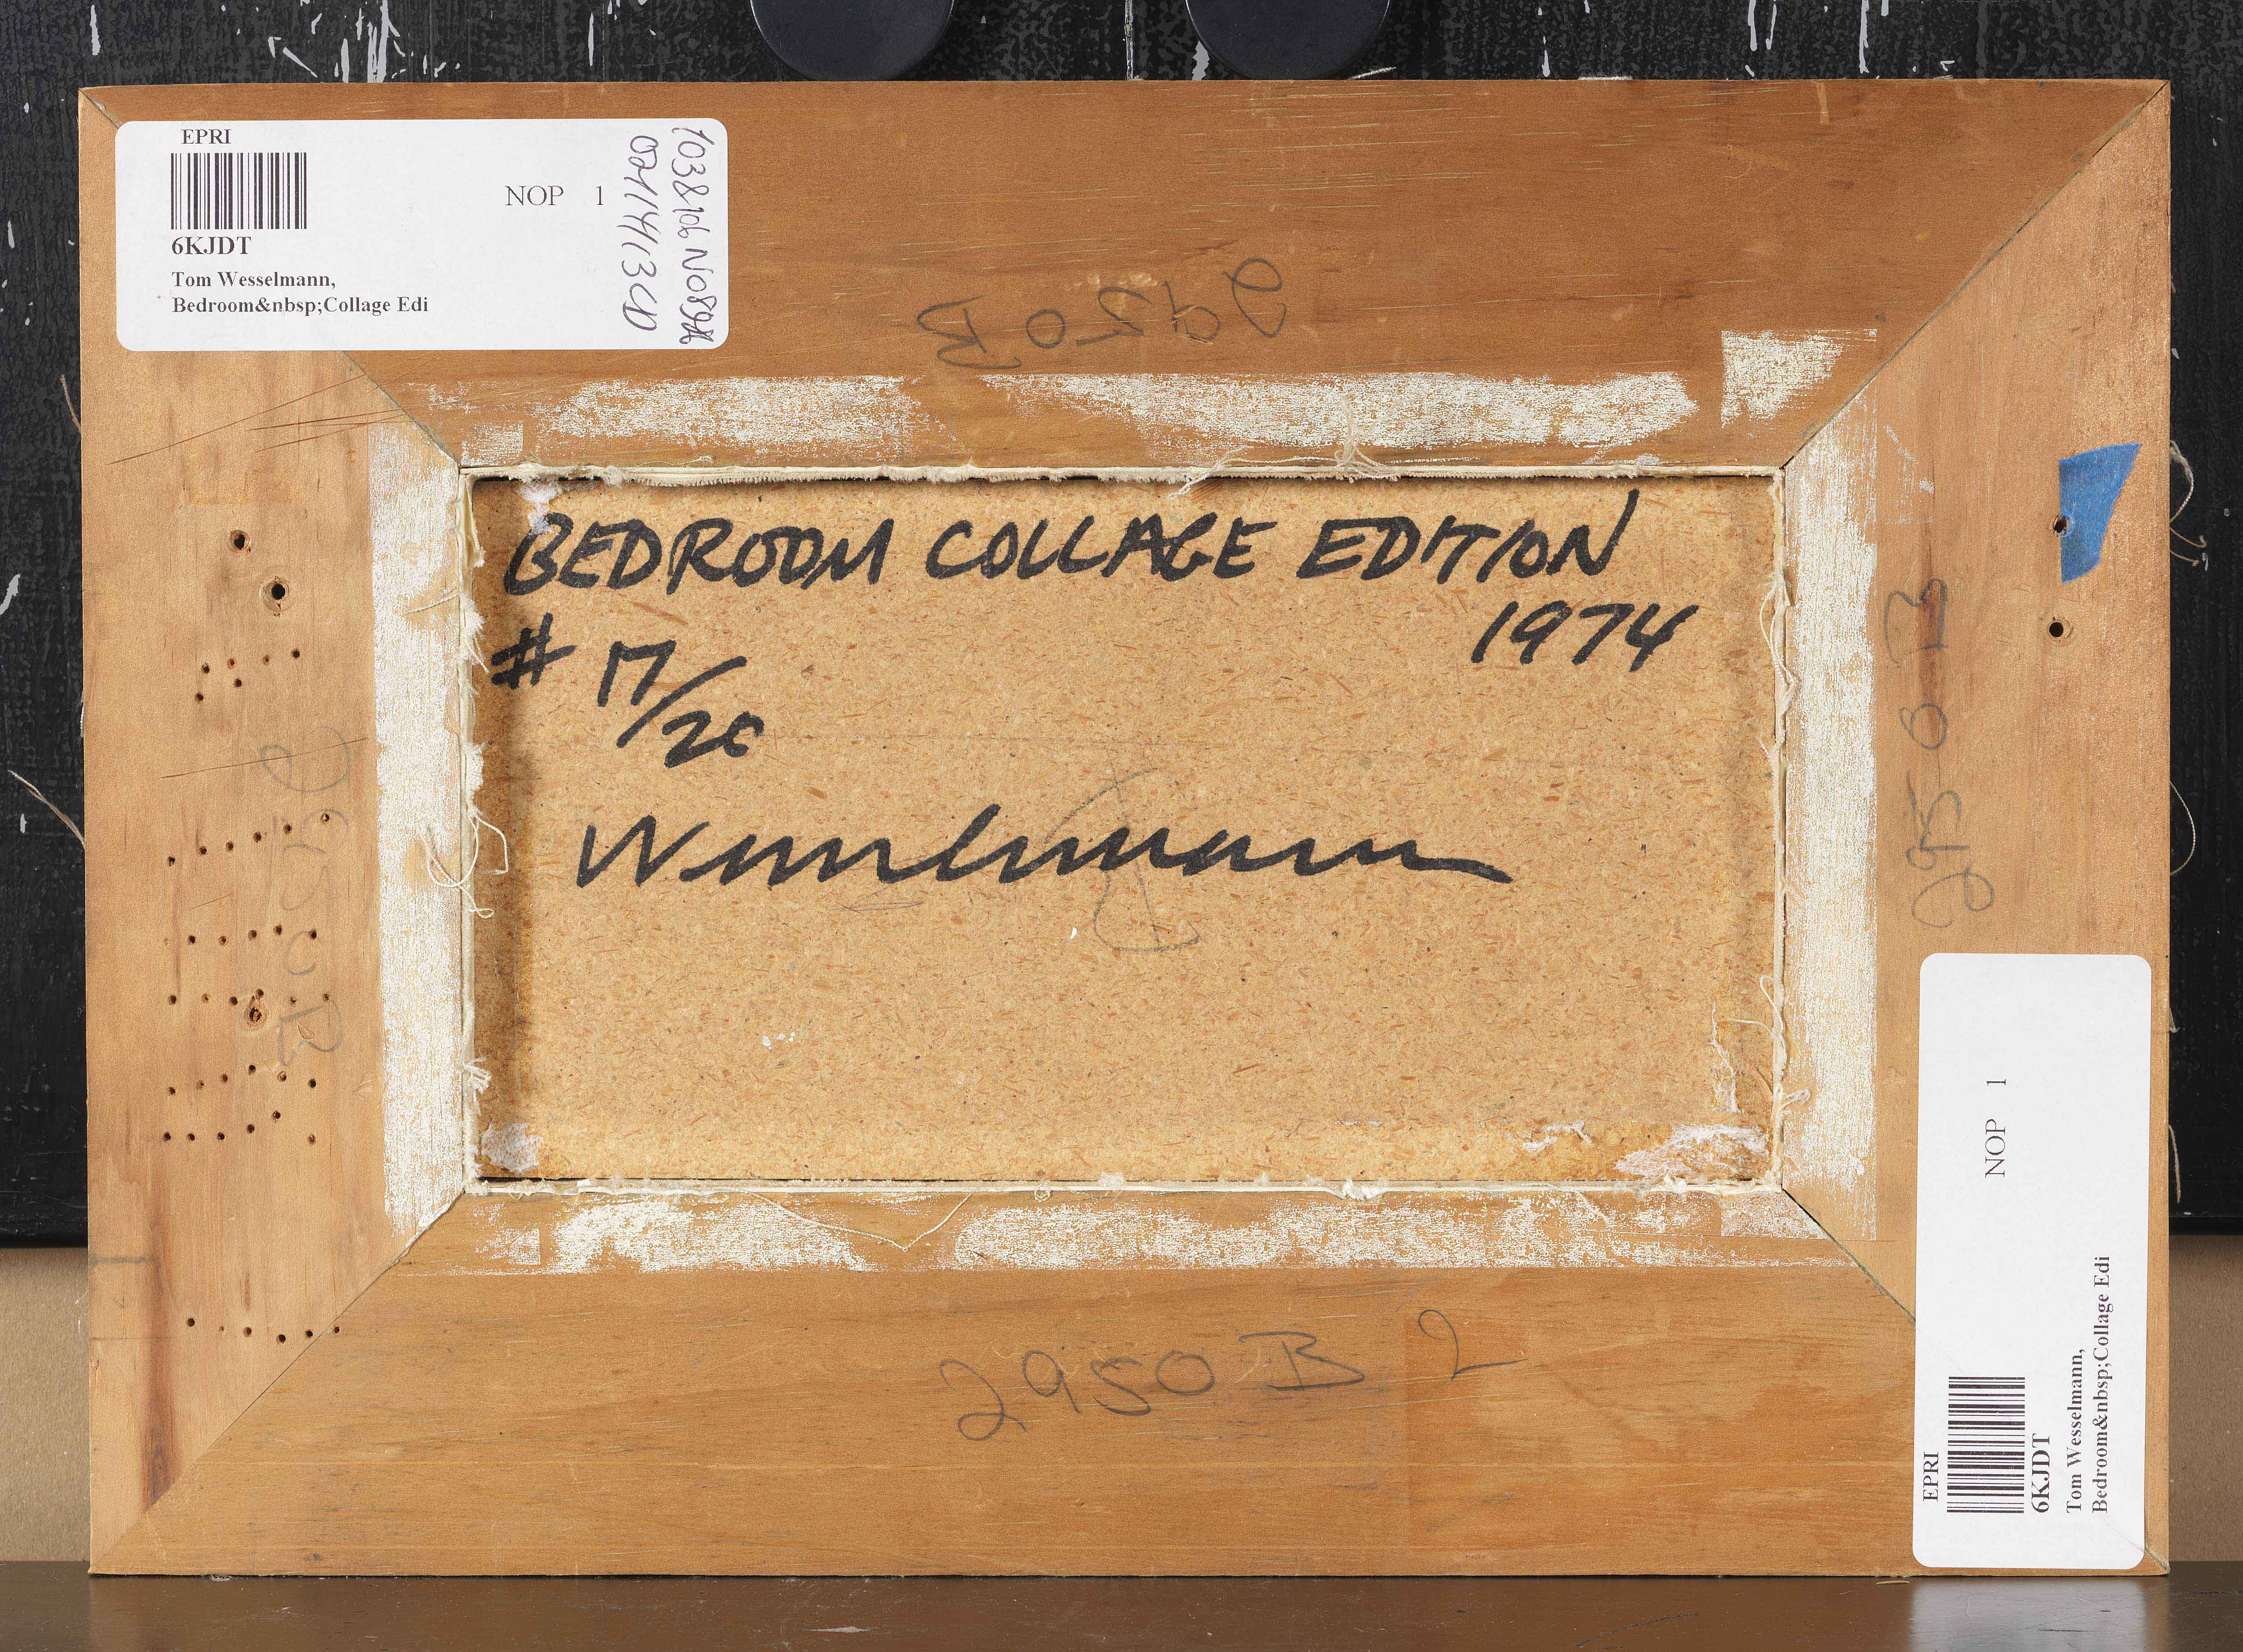 EPRI
NOP 1
6KJDT
Tom Wesselmann,
Bedroom&nbsp;Collage Edi
2950B
BEDROOM COLLAGE EDITION
1974
# 17/20
Wesselmann
2950B
2950B
2950B 2
EPRI
NOP 1
6KJDT
Tom Wesselmann,
Bedroom&nbsp;Collage Edi